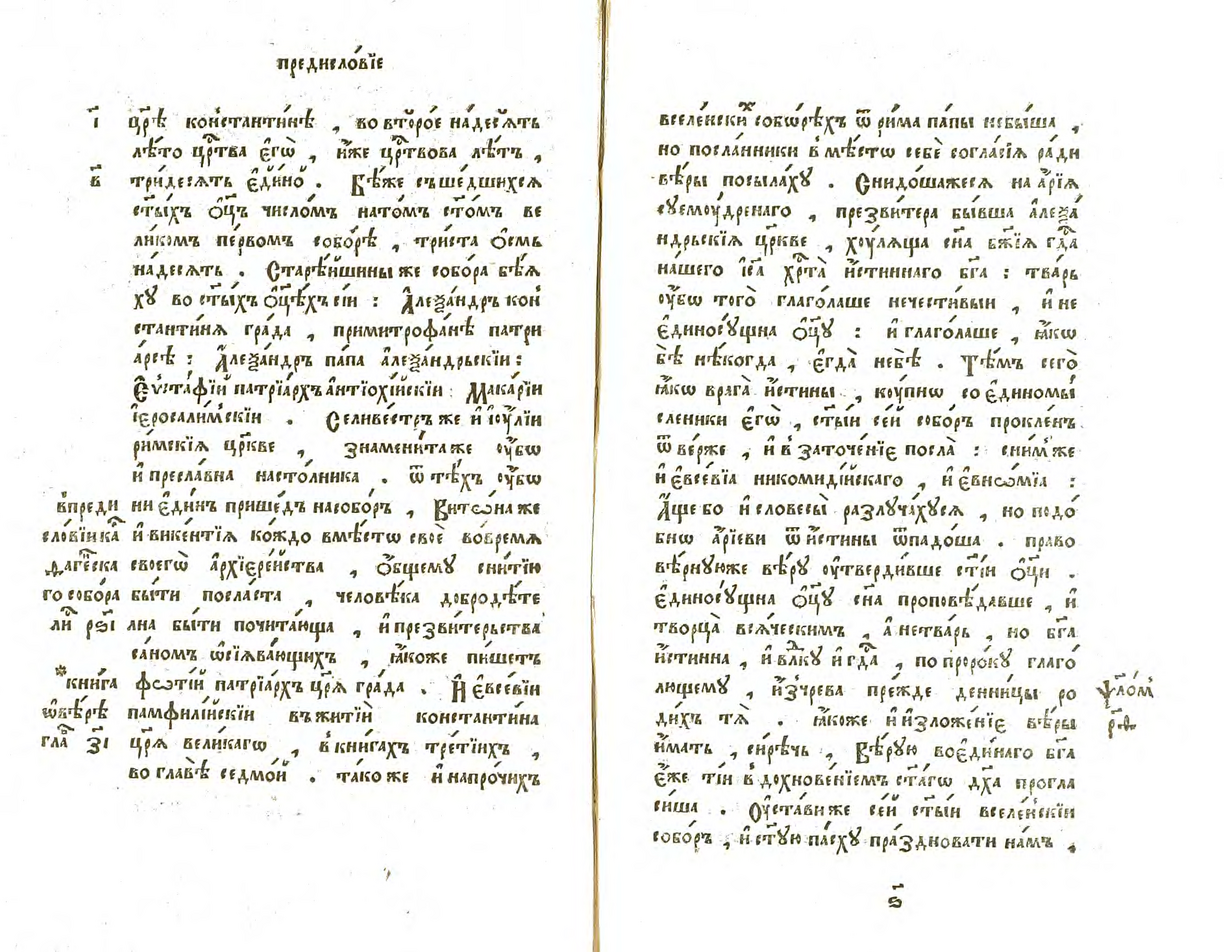 предисло́вїе
і҃ цр҃ѣ ко́нстанти́нѣ , во второ́е на́десѧть
лѣ́то црⷭ҇тва є҆гѡ̀ , и҆́же црⷭ҇твова лѣ́тъ ,
в҃ три́десѧть є҆ди́но . Бѣ́же съше́дшихсѧ
ст҃ы́хъ ѻ҆ц҃ъ число́мъ нато́мъ сто́мъ ве
ли́комъ пе́рвомъ собо́рѣ , три́ста ѻ҆́смь
на́десѧть . Старѣ́йшины же собо́ра бѣ́ѧ
хꙋ во ст҃ы́хъ ѻ҆ц҃ѣхъ сїи : А҆леѯа́ндръ кон
стантинѧ гра́да , примитрофа́нѣ патри
а́рсѣ : А҆леѯа́ндръ па́па а҆леѯа́ндрьскїи :
Є҆ѵста́фїй патрїа́рхъ а҆нтїохі́йскїи : Мака́рїи
і҆еросали́мскїи . Селиве́стръ же и҆ і҆ꙋ́лїи
ри́мскїѧ цр҃кве , знамени́та же ᲂу҆́бѡ
и҆ пресла́вна насто́лника . ѿ тѣ́хъ ᲂу҆́бѡ
ни є҆ди́нъ прише́дъ насобо́ръ , Витѡ́на же
и҆ вике́нтїѧ ко́ждо вмѣ́стѡ своѐ во́времѧ
своегѡ̀ а҆рхїере́йства , ѻ҆́бщемꙋ сни́тїю
бы́ти посла́ста , человѣ́ка добродѣ́те
лна бы́ти почита́юща , и҆ презви́терьства
са́номъ ѡ҆сїѧва́ющихъ , ꙗ҆́коже пи́шетъ
фѡ́тїй патрїа́рхъ цр҃ѧ гра́да . И҆ є҆все́вїи
памфилі́йскїи въ житїи константи́на
цр҃ѧ вели́кагѡ , в кни́гахъ тре́тїихъ ,
во главѣ̀ седмо́й . та́ко же и҆ напро́чихъ
в преди
сло́вїи ка
,даге́ска
го собо́ра
ли рѕ҃і
*кни́га
ѡ҆ вѣ́рѣ
гла з҃і
вселе́нскихъ собо́рѣхъ ѿ ри́ма па́пы небы́ша ,
но посла́нники в мѣ́стѡ себѐ согла́сїѧ ра́ди
вѣ́ры посыла́хꙋ . Снидо́шажесѧ на а҆́рїѧ
сꙋемꙋ́дренаго , презви́тера бы́вша а҆леѯа́
ндрьскїѧ цр҃кве , хꙋ́лѧща сн҃а бж҃їѧ гдⷭ҇а
на́шего і҆с҃а хрⷭ҇та̀ и҆́стиннаго бг҃а : тва́рь
ᲂу҆́бѡ того̀ глаго́лаше нечести́выи , и҆ не
є҆диносꙋ́щна ѻ҆ц҃ꙋ : и҆ глаго́лаше , ꙗ҆́кѡ
бѣ̀ нѣ́когда , є҆гда̀ небѣ̀ . Тѣ́мъ сего̀
ꙗ҆́кѡ врага̀ и҆́стины , кꙋ́пнѡ со є҆диномы́
сленики є҆гѡ̀ , ст҃ы́и се́й собо́ръ прокле́нъ
ѿве́рже , и҆ в заточе́нїе посла̀ : сни́мже
и҆ є҆все́вїа никомиді́йскаго , и҆ є҆вно́мїа :
А҆́ще бо и҆ словесы̀ разлꙋча́хꙋсѧ , но подо́
бнѡ а҆́рїеви ѿ и҆́стины ѿпадо́ша . пра́во
вѣ́рнꙋюже вѣ́рꙋ ᲂу҆тверди́вше ст҃і́и ѻ҆ц҃ы .
є҆диносꙋ́щна ѻ҆ц҃ꙋ сн҃а проповѣ́давше , и҆
творца̀ всѧ́ческимъ , а҆ нетва́рь , но бг҃а
и҆́стинна , и҆ влⷣкꙋ и҆ гдⷭ҇а , по проро́кꙋ глаго́
лющемꙋ , и҆зчре́ва пре́жде денни́цы ро
ди́хъ тѧ̀ . ꙗ҆́коже и҆ и҆зложе́нїе вѣ́ры
и҆́мать , си́рѣчь , Вѣ́рꙋю воє҆ди́наго бг҃а
є҆́же ті́и в дохнове́нїемъ ст҃а́гѡ дх҃а прогла
си́ша . Оу҆ста́виже се́й ст҃ы́и вселе́нскїи
собо́ръ , и҆ ст҃ꙋ́ю па́схꙋ пра́здновати на́мъ ,
ѱало́м
рѳ҃
ѕ҃